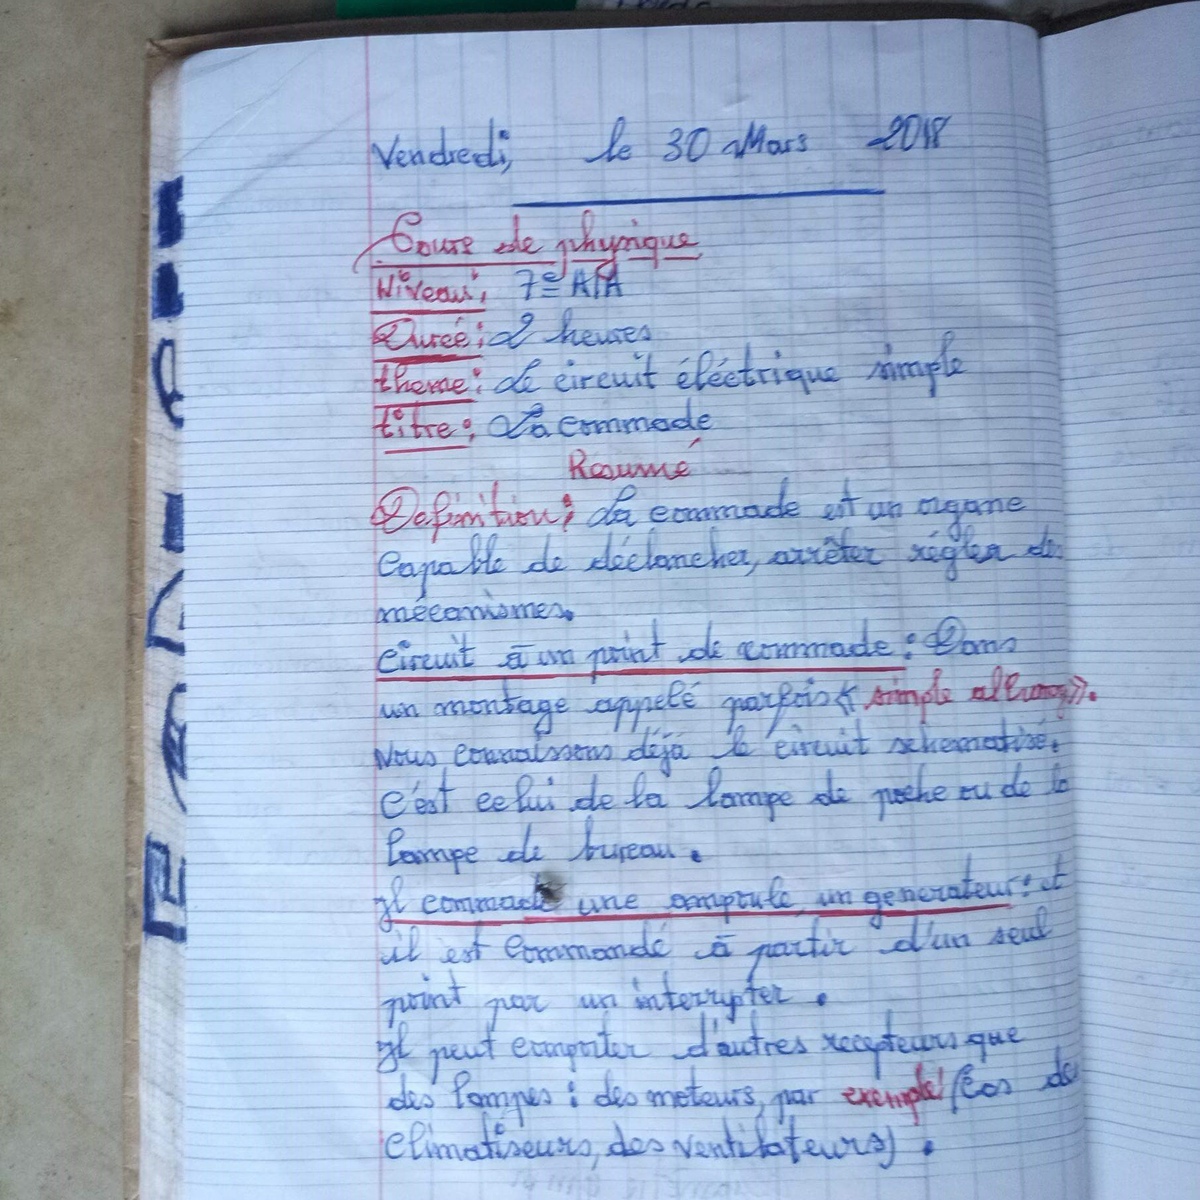 Vendredi, le 30 Mars 2018
Cours de physique
Niveau: 7e A/A
Durée: 2 heures
theme: Le circuit éléctrique simple
titre: La commade
Resumé
Definition: La commade est un organe
capable de déclancher, arrêter régler des
mécanismes.
circuit à un point de commade: Dans
un montage appelé parfois « simple allumag».
Nous connaissons déjà le circuit schematisé.
C'est celui de la lampe de poche ou de la
lampe de bureau.
Il commade une ampoule, un generateur: et
il est commandé à partir d'un seul
point par un interrypter.
Il peut comporter d'autres recepteurs que
des lampes: des moteurs, par exemple (Cas de
climatiseurs, des ventilateurs).